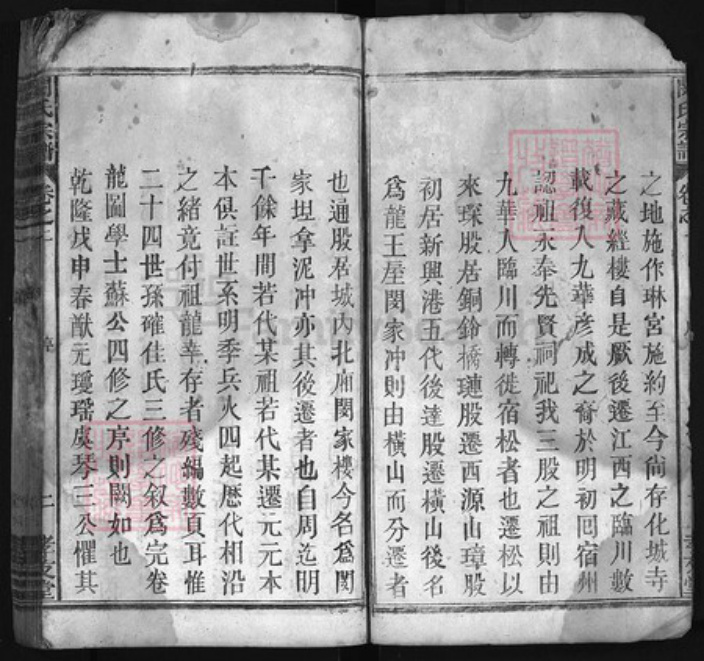 之地施作琳宮施約至今尙存化城寺
之藏經樓自是厥後遷江西之臨川數
載復入九華彦成之裔於明初囘宿州
認祖永奉先賢祠祀我三股之祖則由
九華入臨川而轉徙宿松者也遷松以
來琛股居銅鈴橋璉股遷西源山璋股
初居新興港五代後達股遷橫山後名
爲龍王屋閔家冲則由橫山而分遷者
也通股居城内北廂閔家樓今名爲閔
家坦拿泥冲亦其後遷者也自周迄明
千餘年間若代某祖若代某遷元元本
本俱註世系明季兵火四起歷代相沿
之緒竟付祖龍幸存者殘編數頁耳惟
二十四世孫確佳氏三修之叙爲完卷
龍圖學士蘇公四修之序則闕如也
乾隆戊申春猷元瓊瑶虞琴三公懼其
氏宗譜
卷之